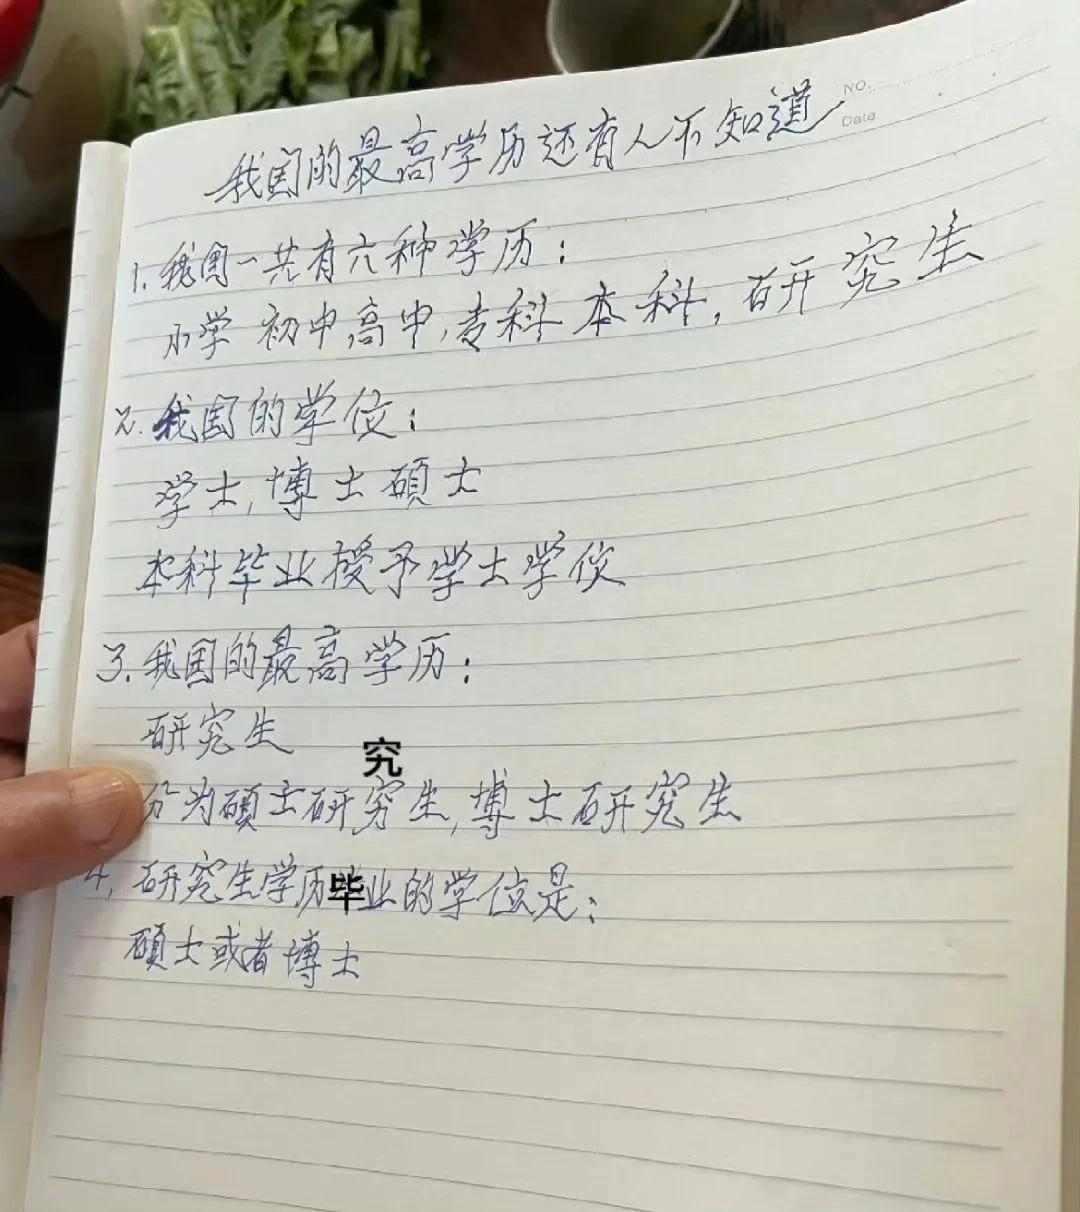 NO.
Date
我国的最高学历还有人不知道
1. 我国一共有六种学历：
小学 初中高中,专科 本科, 研究生
2. 我国的学位：
学士, 博士 碩士
本科毕业授予学士学位
3. 我国的最高学历：
研究生
究
分为碩士研究生, 博士研究生
4, 研究生学历毕业的学位是：
碩士或者博士